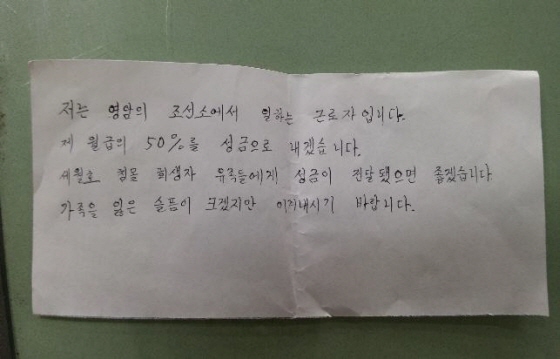 저는 영암의 조선소에서 일하는 근로자입니다.
제 월급의 50%를 성금으로 내겠습니다.
세월호 침몰 희생자 유족들에게 성금이 전달됐으면 좋겠습니다
가족을 잃은 슬픔이 크겠지만 이겨내시기 바랍니다.